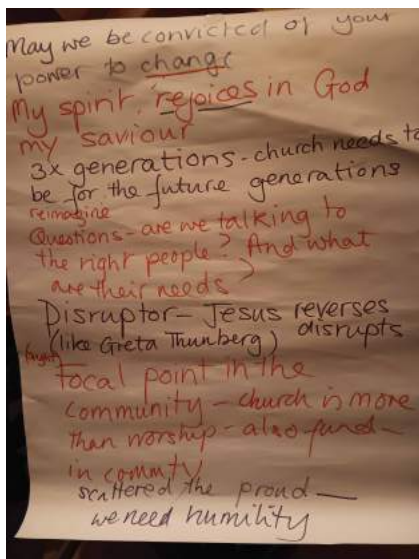 May we be convicted of your
power to change
My spirit rejoices in God
my saviour
3x generations - church needs to
be for the future generations
reimagine
Questions - are we talking to
the right people? And what
are their needs?
Disruptor - Jesus reverses
(like Greta Thunberg) disrupts
Focal point in the
community - church is more
than worship - also fund-
in commty
scattered the proud —
we need humility